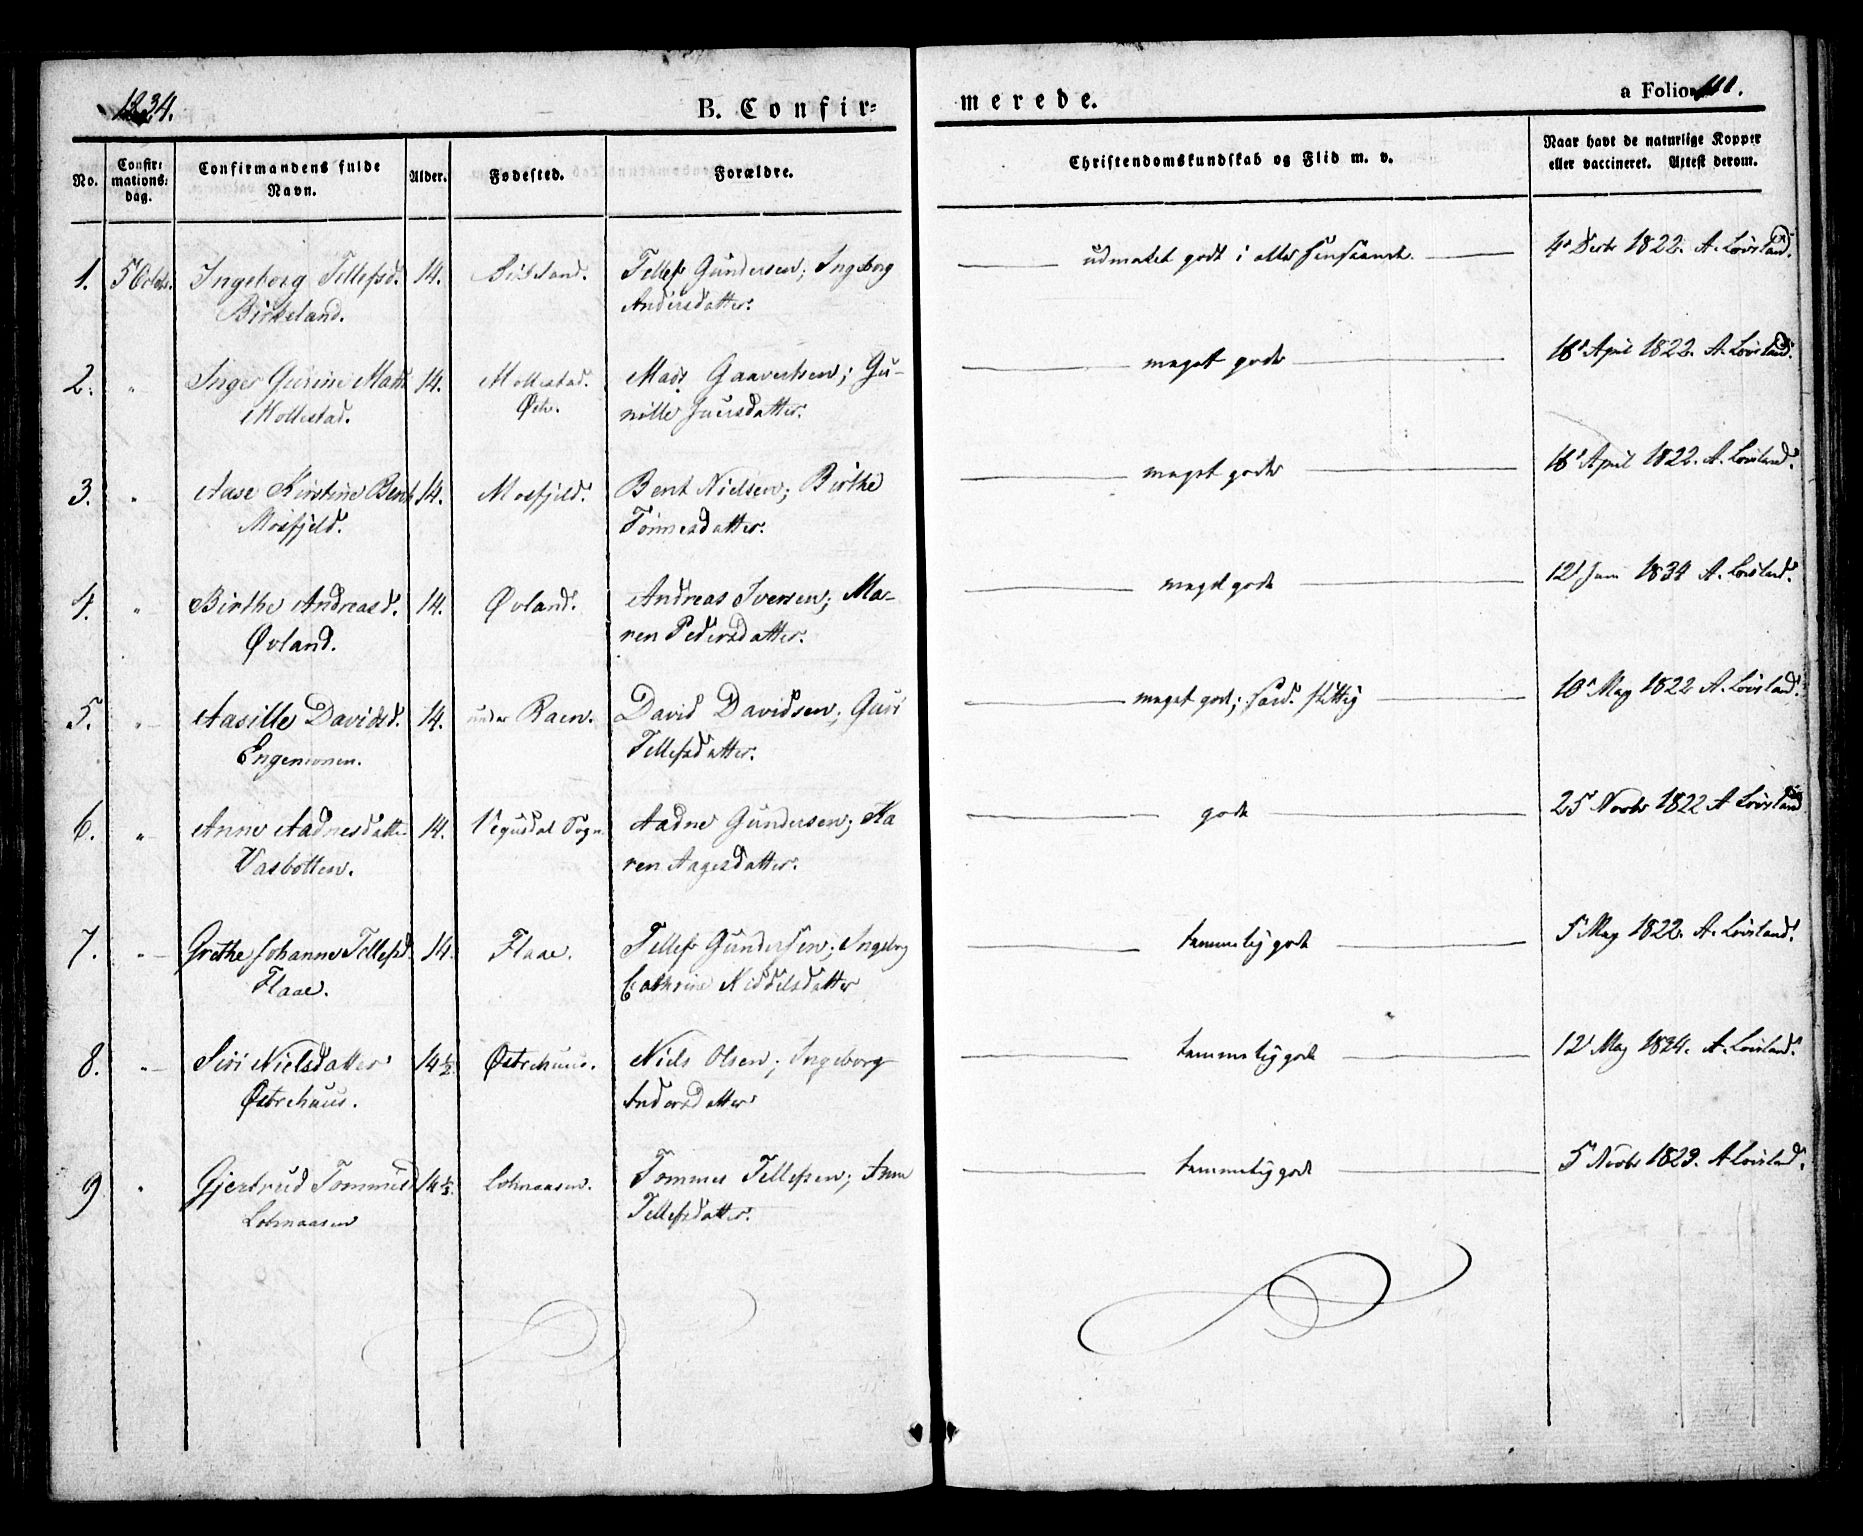 1834.
B. Confir=
merede.
a Folio 111.
No.
Confir=
mations=
dag.
Confirmandens fulde
Navn.
Alder.
Fødested.
Forældre.
Christendomskundskab og Flid m. v.
Naar havt de naturlige Kopper
eller vaccineret. Attest derom.
1. 5 Octobr. Ingeborg Tellefsd. 14. Birkeland. Tellef Gundersen; Ingeborg
Birkeland. Andersdatter.
udmærket godt i alle
4 Decbr 1822. A. Løvsland.
2. " Inger Gurine Mads 14. Mollestad. Mads Gaavertsen; Gu-
Mollestad. nille Iversdatter.
meget godt
18 April 1822. A. Løvsland.
3. " Aase Kirstine Bent 14. Mosfjeld. Bent Nielsen; Birthe
Mosfjeld. Tønnesdatter.
meget godt
18 April 1822. A. Løvsland.
4. " Birthe Andreasd. 14. Øvland. Andreas Iversen; Ma-
Øvland. ren Pedersdatter.
meget godt
12 Juni 1834 A. Løvsland.
5. " Aasille Davidsd. 14. under Raen. David Davidsen; Guri
Engemoen. Tellefsdatter.
meget godt; flittig
10 May 1822 A. Løvsland.
6. " Anne Aadnesdatter 14. Vegusdal Sogn Aadne Gundersen; Ka
Vasbotten. ren Aagesdatter.
godt
25 Novbr 1822 A Løvsland
7. " Grethe Johanne Tellefsd. 14. Flaae. Tellef Gundersen; Ingeborg
Flaae. Cathrine Niddelsdatter
temmelig godt
5 May 1822. A. Løvsland.
8. " Siri Nielsdatter 14½. Østrehuus. Niels Olsen; Ingeborg
Østrehuus. Andersdatter
temmelig godt
12 May 1824. A. Løvsland.
9 " Gjertrud Tommesd 14½. Tommes Tellefsen; Anne
Tellefsdatter.
temmelig godt
5 Novbr 1823. A Løvsland.